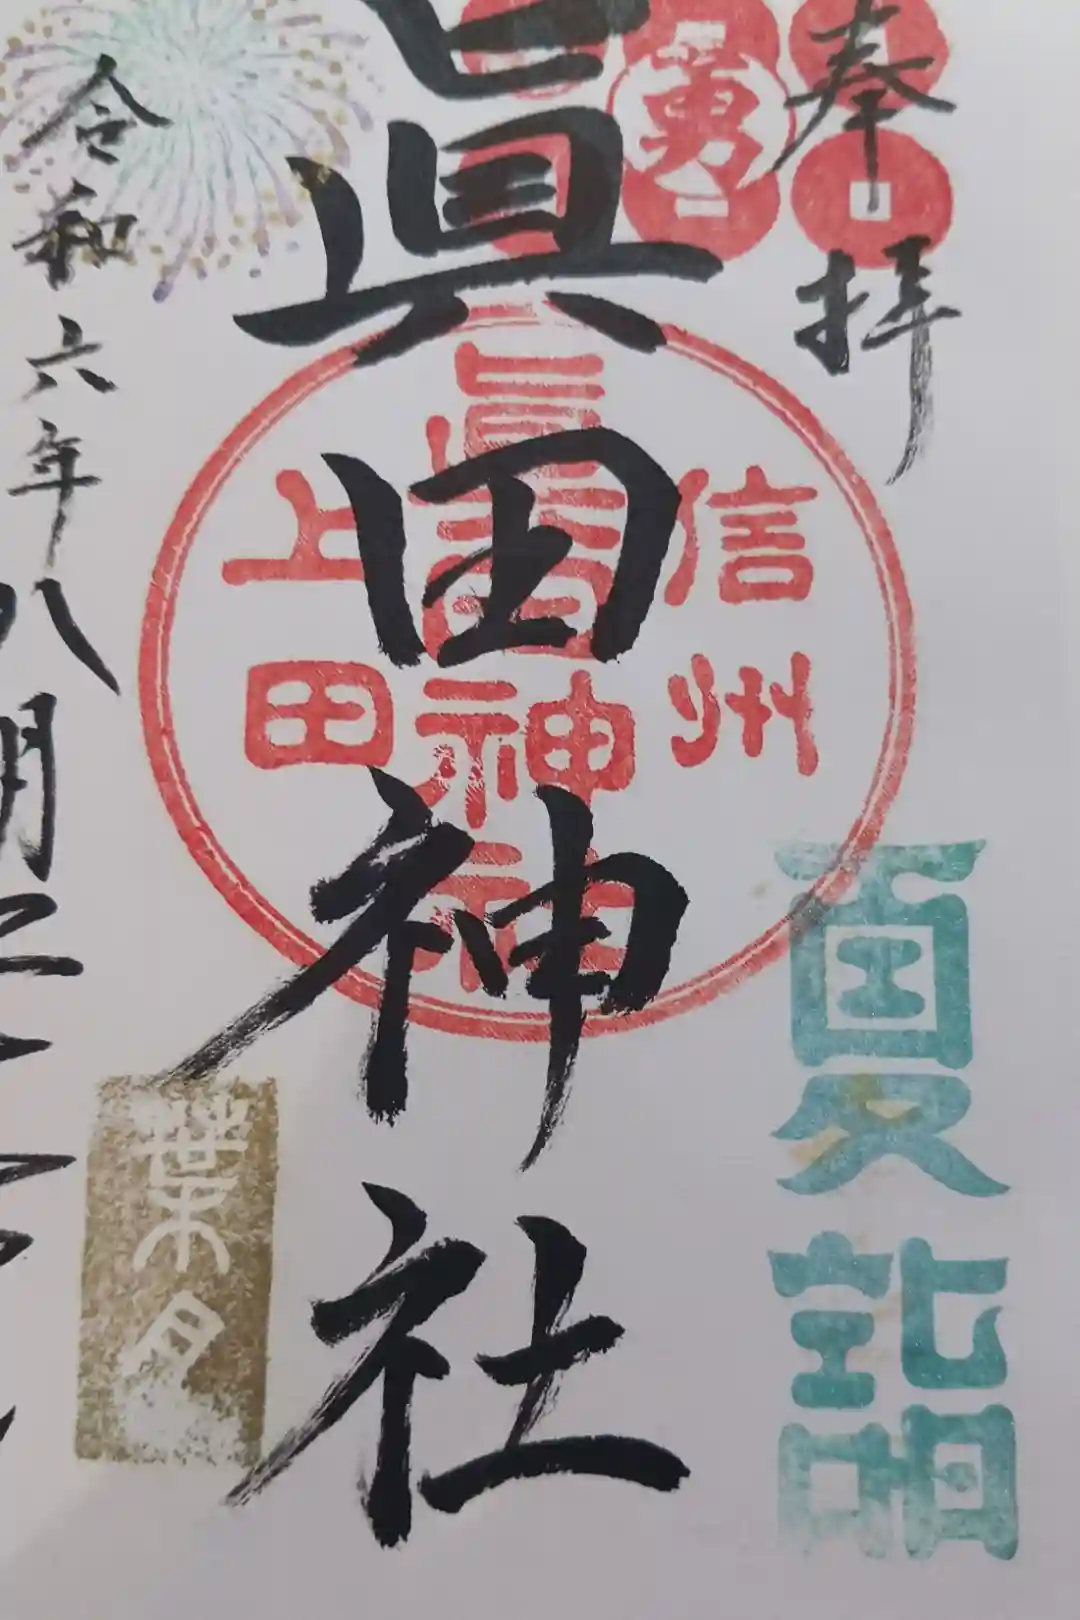 奉拝
夏詣
勇
眞田神社
信州
眞田神社
上田
令和六年八月二十
葉月